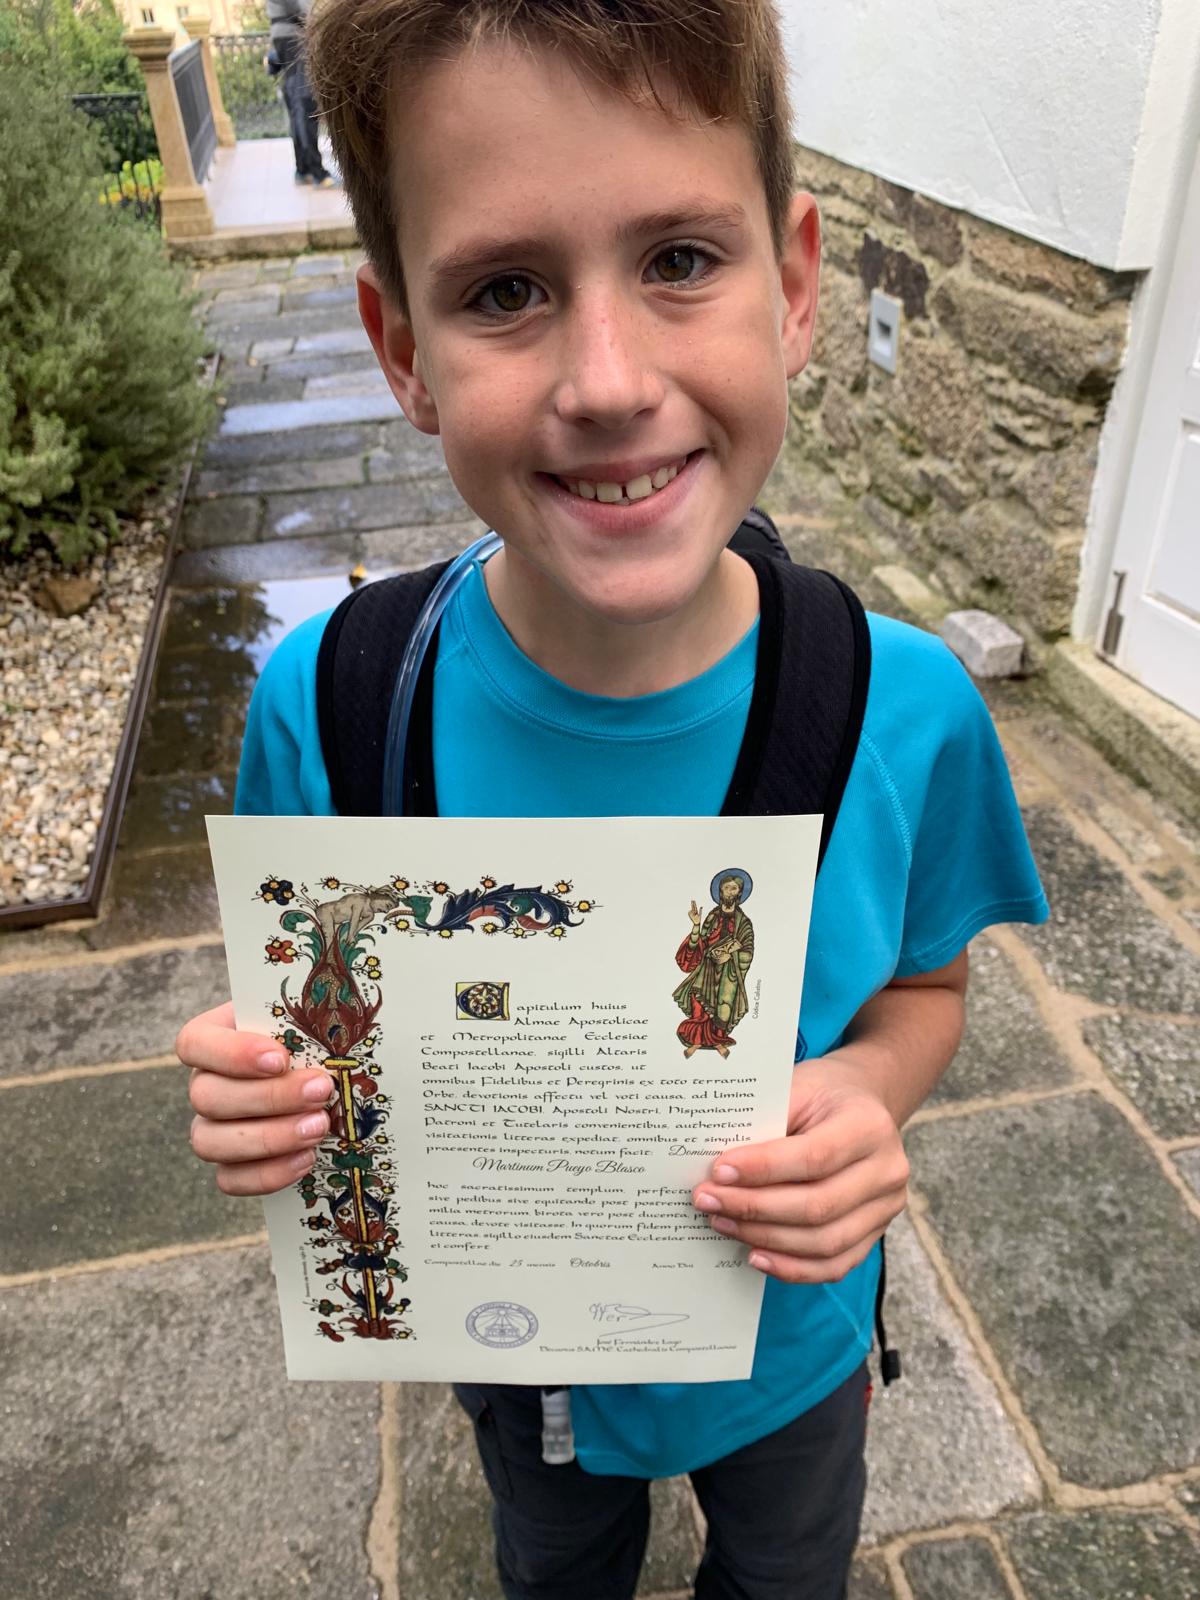 Capitulum huius
Almae Apostolicae
et Metropolitanae Ecclesiae
Compostellanae, sigilli Altaris
Beati Iacobi Apostoli custos, ut
omnibus Fidelibus et Peregrinis ex toto terrarum
Orbe, devotionis affectu vel voti causa, ad limina
SANCTI IACOBI, Apostoli Nostri, Hispaniarum
Patroni et Tutelaris convenientibus, authenticas
visitationis litteras expediat, omnibus et singulis
praesentes inspecturis, notum facit: Dominum
Martinum Pueyo Blasco
hoc sacratissimum templum, perfecto
sive pedibus sive equitando post postrema
milia metrorum, birota vero post ducenta,
causa, devote visitasse. In quorum fidem
litteras, sigillo eiusdem Sanctae Ecclesiae
ei confert.
Compostellae die 25 mensis Octobris Anno Dni 2024
José Fernández Lago
Decanus S.A.M.E. Cathedralis Compostellanae
Códice Calixtino